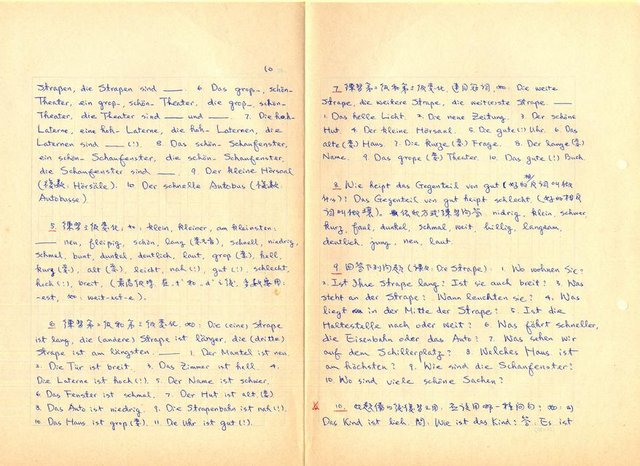 10
Strapen, die Strapen sind ___. 6 Das grop_, schön_
Theater, ein grop_, schön_ Theater, die grop_, schön_
Theater, die Theater sind ___ und ___. 7. Die hoh_
Laterne, eine hoh_ Laterne, die hoh_ Laternen, die
Laternen sind ___ (!). 8. Das schön_ Schaufenster,
ein schön_ Schaufenster, die schön_ Schaufenster,
die Schaufenster sind ___. 9 Der kleine Hörsaal
(複數: Hörsäle). 10 Der schnelle Autobus (複數:
Autobusse).
5 練習三级变化, 如: klein, kleiner, am kleinsten:
___ neu, fleipig, schön, lang (变音), schnell, niedrig,
schmal, bunt, dunkel, deutlich, laut, grop (变), hell,
kurz (变), alt (变), leicht, nah (!), gut (!), schlecht,
hoch (!), breit,
-est, 如: weit-est-e).
6 練習第二级和第三级变化, 如: Die (eine) Strape
ist lang, die (andere) Strape ist länger, die (dritte)
Strape ist am längsten. ___ 1. Der Mantel ist neu.
2. Die Tür ist breit. 3. Das Zimmer ist hell. 4.
Die Laterne ist hoch (!). 5. Der Name ist schwer.
6 Das Fenster ist schmal. 7. Der Hut ist alt (变)
8. Das Auto ist niedrig. 9. Die Strapenbahn ist nah (!).
10. Das Haus ist grop (变). 11. Die Uhr ist gut (!).
7. 練習第二级和第三级变化, 連同名詞, 如: Die weite
Strape, die weitere Strape, die weiteste Strape. ___
1 Das helle Licht. 2. Die neue Zeitung. 3. Der schöne
Hut. 4. Der kleine Hörsaal. 5. Die gute (!) Uhr. 6. Das
alte (变) Haus. 7. Die kurze (变) Frage. 8. Der lange (变)
Name. 9 Das grope (变) Theater. 10. Das gute (!) Buch.
8. Wie heipt das Gegenteil von gut (好的反詞叫做
什么)? Das Gegenteil von gut heipt schlecht. (好的相反
詞叫做壞). niedrig, klein, schwer
kurz, faul, dunkel, schmal, weit, billig, langsam,
deutlich, jung, neu, laut.
9. 回答下列问题 (課文: Die Strape): 1. Wo wohnen Sie?
2. Ist Ihre Strape lang? Ist sie auch breit? 3. Was
steht an der Strape? Wann leuchten sie? 4. Was
liegt in der Mitte der Strape? 5. Ist die
Haltestelle nach oder weit? 6. Was fährt schneller,
die Eisenbahn oder das Auto? 7. Was sehen wir
auf dem Schillerplatz? 8. Welches Haus ist
am höchsten? 9. Wie sind die Schaufenster?
10. Wo sind viele schöne Sachen?
10.
Das Kind ist lieb. 問: Wie ist das Kind? 答: Es ist